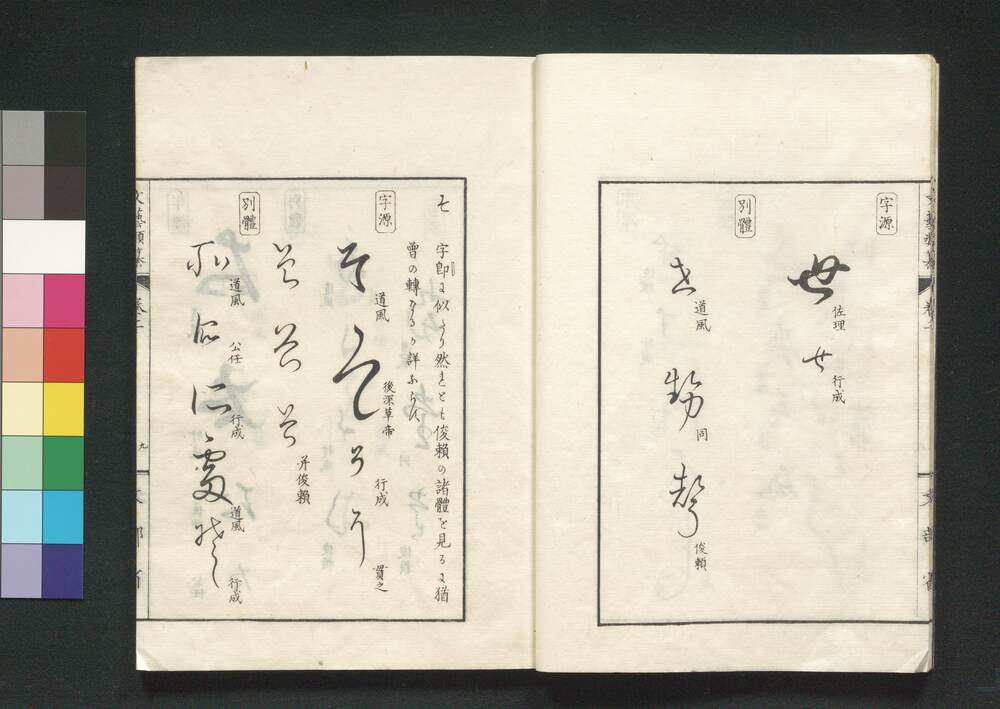 字源
世 佐理
せ 行成
別體
せ 道風
勢 同
聲 俊頼
そ
字卽に似たり然れとも俊頼の諸體を見るに猶
曾の轉なるか詳ならす
字源
そ 道風
そ 後深草帝
そ 行成
そ 貫之
曾
曾
曾 并俊頼
別體
所 道風
所 公任
所 行成
處 道風
楚 行成
文藝類纂 卷二
九
文部省